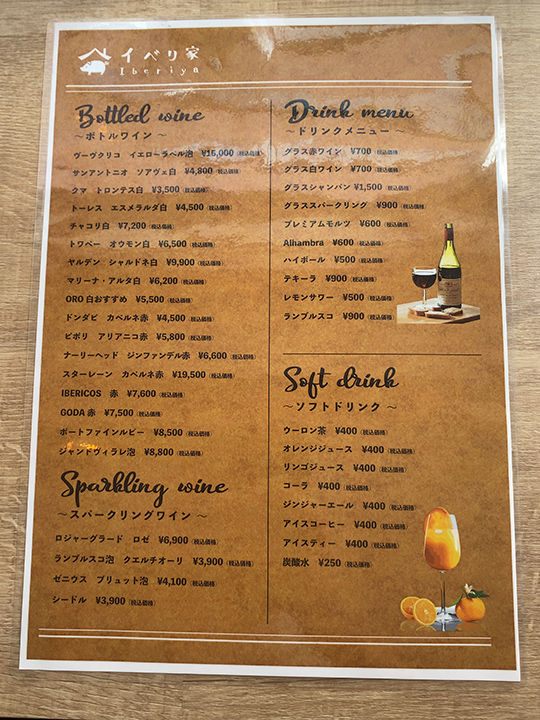 イベリ家
Iberiya
Bottled wine
～ボトルワイン ～
ヴーヴクリコ イエローラベル泡 ¥15,000（税込価格）
サンアントニオ ソアヴェ白 ¥4,800（税込価格）
クマ トロンテス白 ¥3,500（税込価格）
トーレス エスメラルダ白 ¥4,500（税込価格）
チャコリ白 ¥7,200（税込価格）
トワベー オウモン白 ¥6,500（税込価格）
ヤルデン シャルドネ白 ¥9,900（税込価格）
マリーナ・アルタ白 ¥6,200（税込価格）
ORO 白おすすめ ¥5,500（税込価格）
ドンダビ カベルネ赤 ¥4,500（税込価格）
ビポリ アリアニコ赤 ¥5,800（税込価格）
ナーリーヘッド ジンファンデル赤 ¥6,600（税込価格）
スターレーン カベルネ赤 ¥19,500（税込価格）
IBERICOS 赤 ¥7,600（税込価格）
GODA 赤 ¥7,500（税込価格）
ポートファインルビー ¥8,500（税込価格）
ジャンドヴィラレ泡 ¥8,800（税込価格）
Sparkling wine
～スパークリングワイン ～
ロジャーグラード ロゼ ¥6,900（税込価格）
ランブルスコ泡 クエルチオーリ ¥3,900（税込価格）
ゼニウス ブリュット泡 ¥4,100（税込価格）
シードル ¥3,900（税込価格）
Drink menu
～ドリンクメニュー ～
グラス赤ワイン ¥700（税込価格）
グラス白ワイン ¥700（税込価格）
グラスシャンパン ¥1,500（税込価格）
グラススパークリング ¥900（税込価格）
プレミアムモルツ ¥600（税込価格）
Alhambra ¥600（税込価格）
ハイボール ¥500（税込価格）
テキーラ ¥900（税込価格）
レモンサワー ¥500（税込価格）
ランブルスコ ¥900（税込価格）
Soft drink
～ソフトドリンク ～
ウーロン茶 ¥400（税込価格）
オレンジジュース ¥400（税込価格）
リンゴジュース ¥400（税込価格）
コーラ ¥400（税込価格）
ジンジャーエール ¥400（税込価格）
アイスコーヒー ¥400（税込価格）
アイスティー ¥400（税込価格）
炭酸水 ¥250（税込価格）